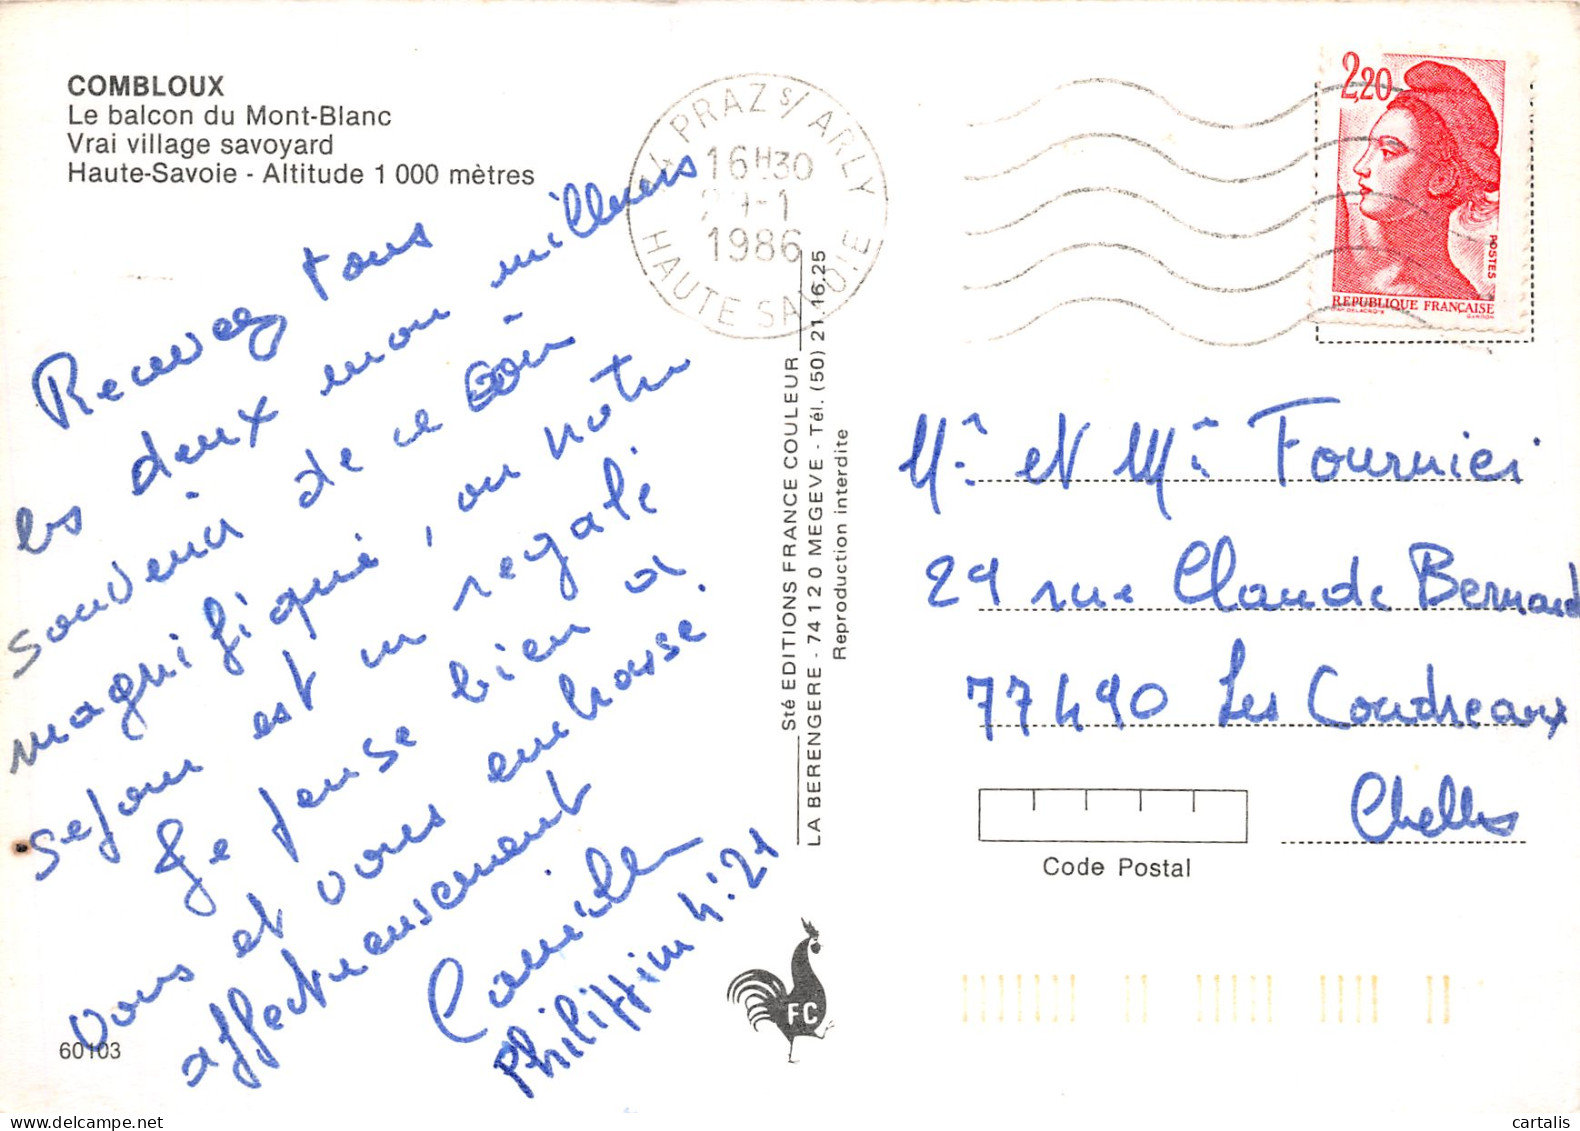 COMBLOUX
Le balcon du Mont-Blanc
Vrai village savoyard
Haute-Savoie - Altitude 1 000 mètres
Recevez tous
les deux mon meilleurs
souvenir de ce coin
magnifique, ou notre
sejour est un regale
Je pense bien a
vous et vous embrasse.
affectueusement
Camille
Philippins 4:21
60103
PRAZ s/ ARLY
16H30
1986
HAUTE SAVOIE
Sté EDITIONS FRANCE COULEUR
LA BERENGERE - 74120 MEGEVE - Tél. (50) 21.16.25
Reproduction interdite
FC
2,20
POSTES
REPUBLIQUE FRANÇAISE
DELACROIX
GANDON
Mr et Me Fournier
29 rue Claude Bernard
77490 Les Coudreaux
Chelles
Code Postal
cartalis